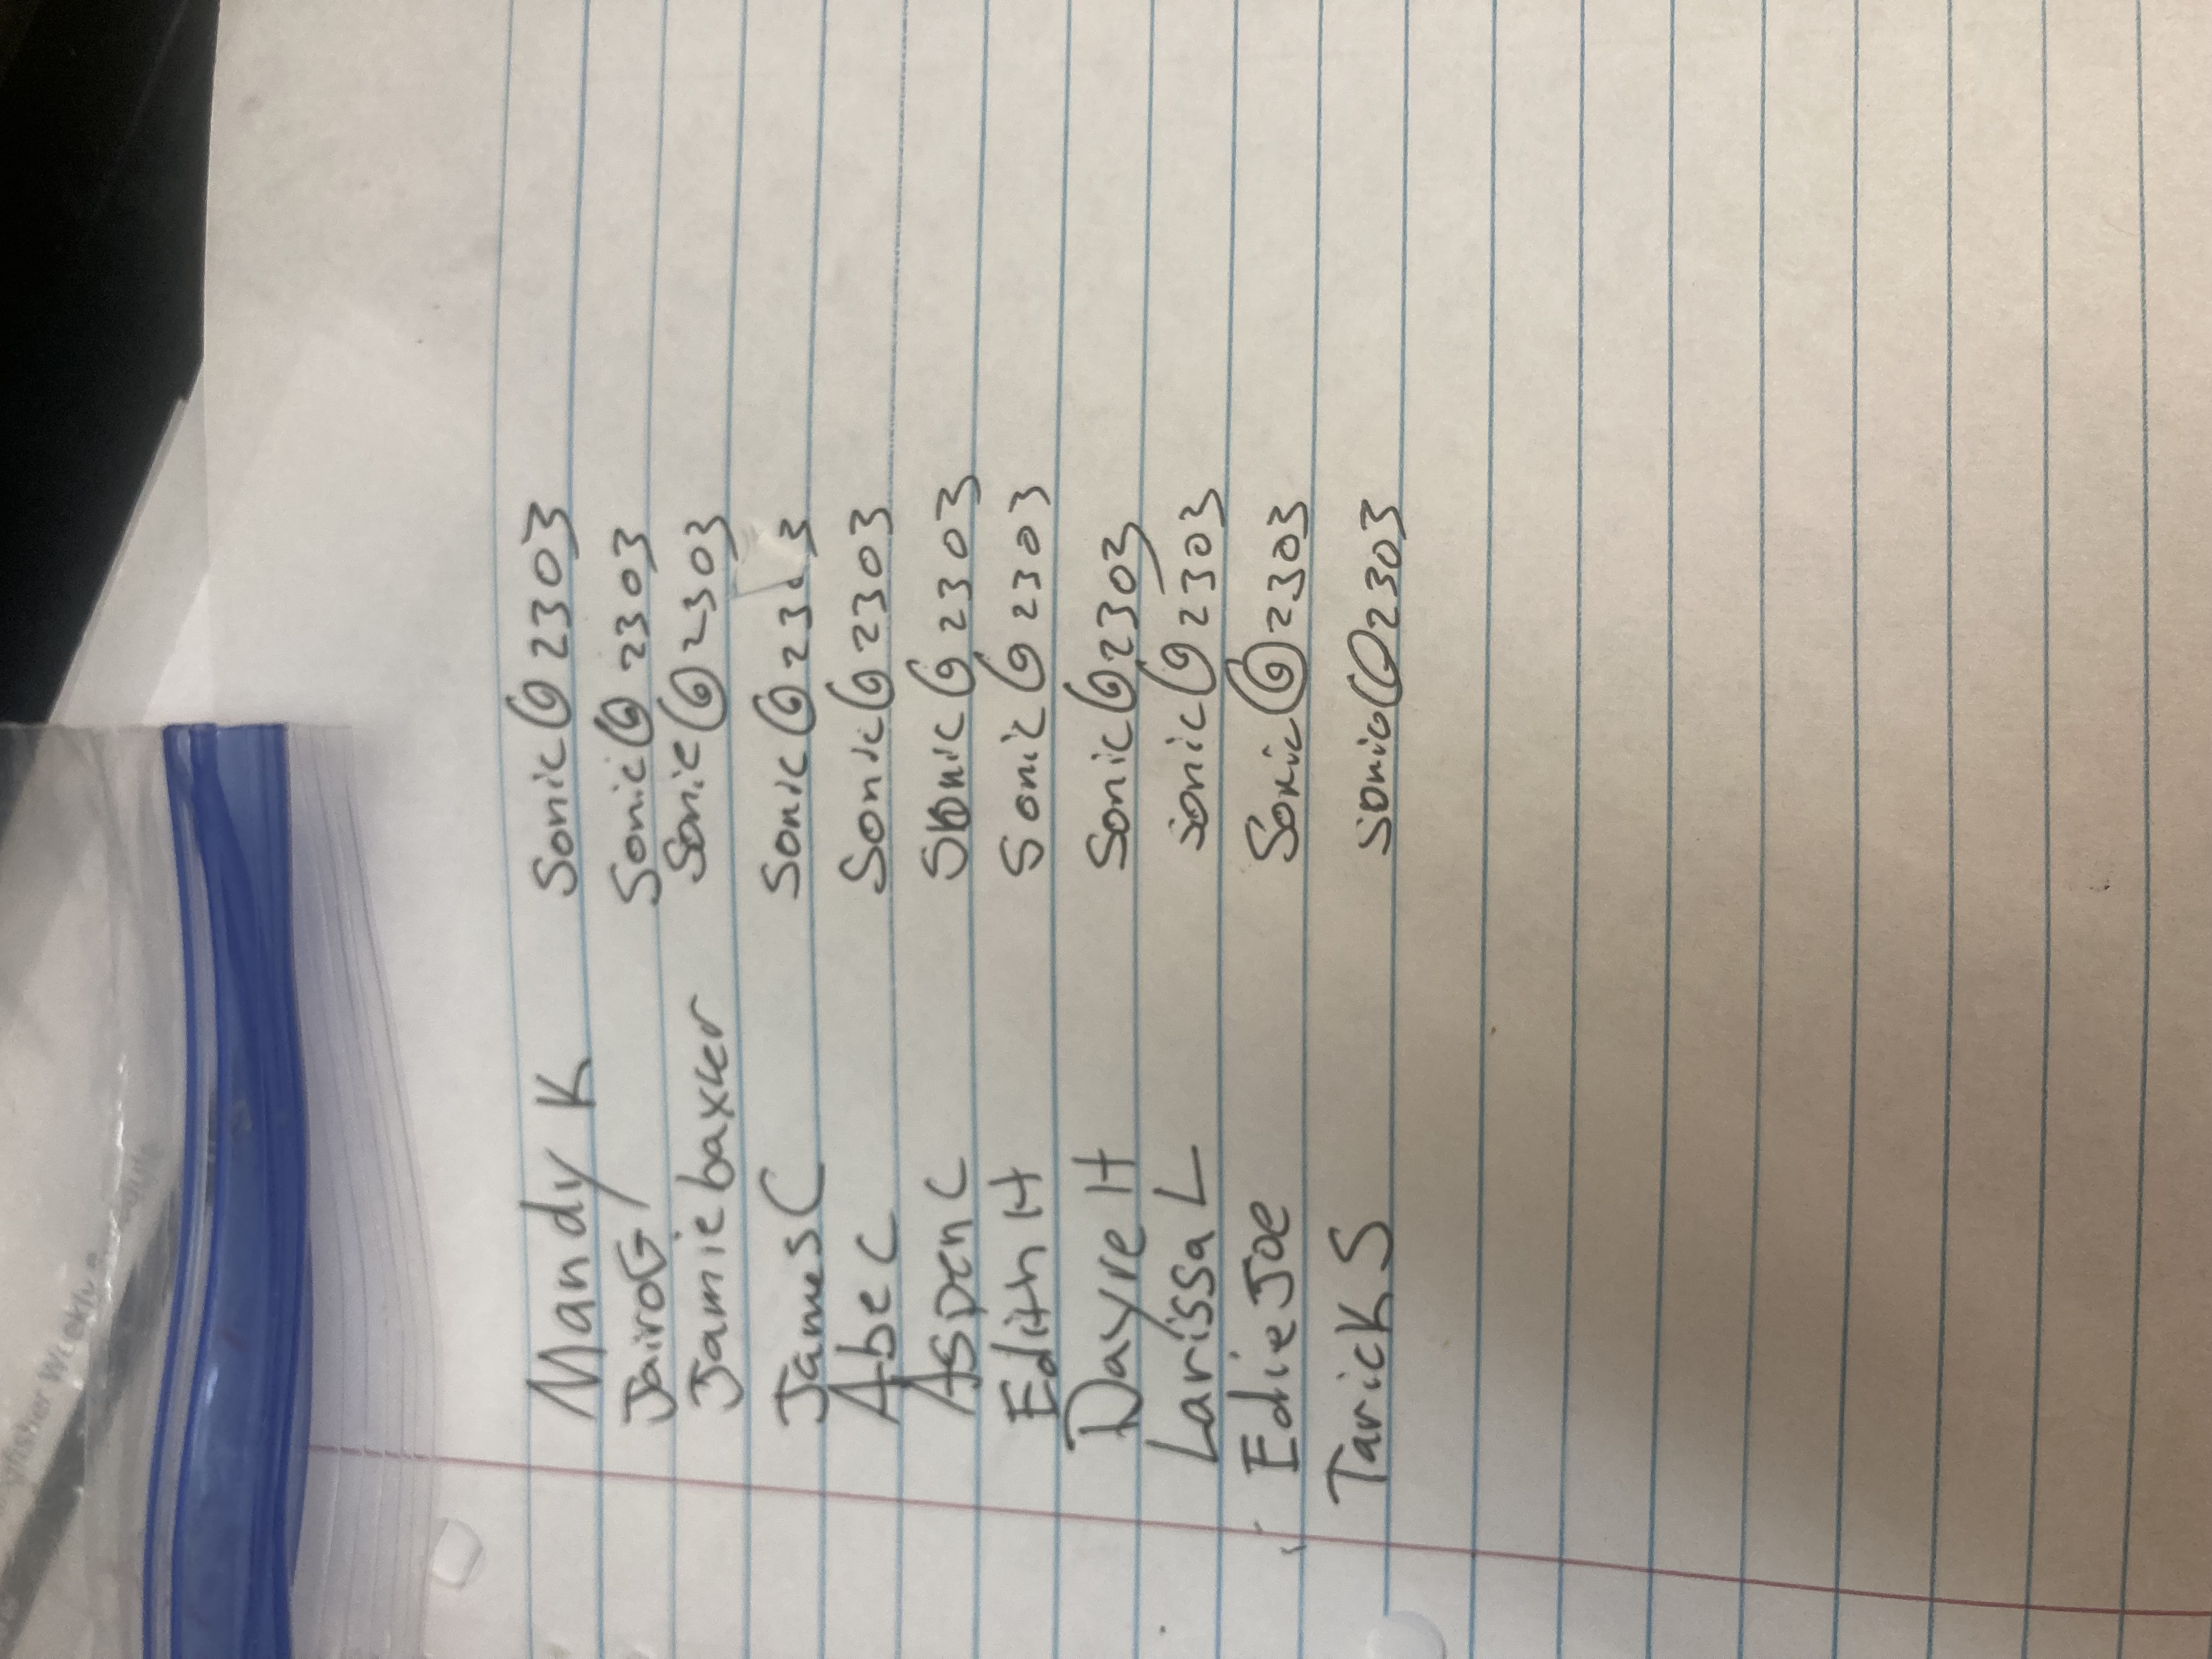 Mandy K Sonic@2303
Jairo G Sonic@2303
Jamie baxter Sonic@2303
James C Sonic@2303
Abe C Sonic@2303
Aspen C Sonic@2303
Edith H Sonic@2303
Dayre H Sonic@2303
Larissa L sonic@2303
Edie Joe Sonic@2303
Tarick S sonic@2303